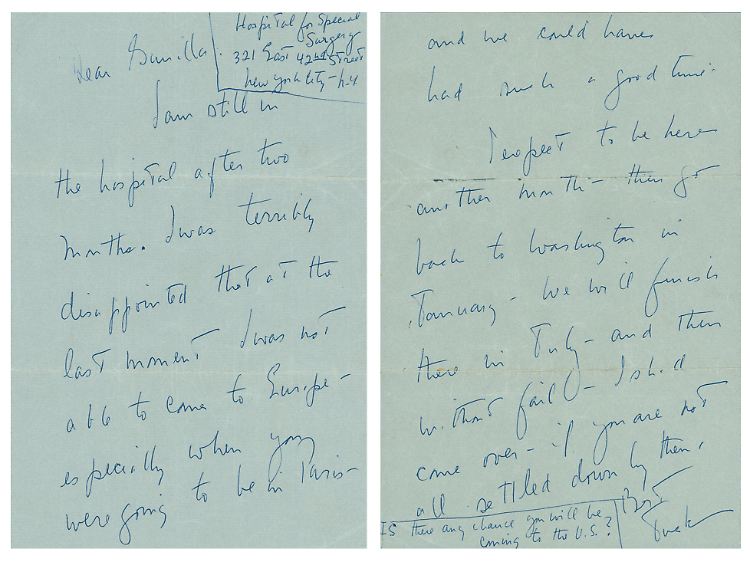 Hospital for Special
Surgery
321 East 42nd Street
New York City - N-Y
Dear Gunilla.
I am still in
the hospital after two
months. I was terribly
disappointed that at the
last moment I was not
able to come to Europe -
especially when you
were going to be in Paris -
and we could have
had such a good time.
I expect to be here
another month - then go
back to Washington in
January - We will finish
there in July - and then
without fail - I shd
come over - if you are not
all settled down by then.
Best
IS there any chance you will be
coming to the U.S.?